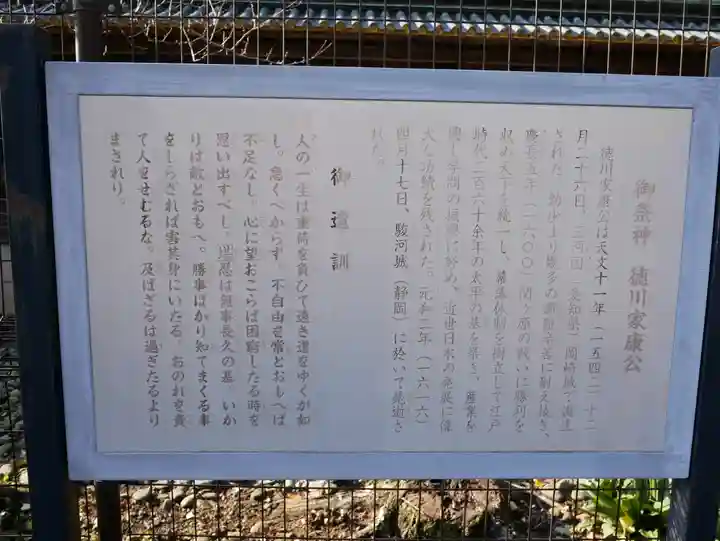 御祭神　徳川家康公
徳川家康公は天文十一年（一五四二）十二
月二十六日、三河国（愛知県）岡崎城で誕生
された。幼少より幾多の艱難辛苦に耐え抜き、
慶長五年（一六〇〇）関ヶ原の戦いに勝利を
収め天下を統一し、幕藩体制を樹立して江戸
時代二百六十余年の太平の基を築き、産業を
興し学問の振興に努め、近世日本の発展に偉
大な功績を残された。元和二年（一六一六）
四月十七日、駿河城（静岡）に於いて薨逝さ
れた。
御遺訓
人の一生は重荷を負ひて遠き道をゆくが如
し。急ぐべからず　不自由を常とおもへば
不足なし。心に望おこらば困窮したる時を
思い出すべし。堪忍は無事長久の基　いか
りは敵とおもへ。勝事ばかり知てまくる事
をしらざれば害其身にいたる　おのれを責
て人をせむるな。及ばざるは過ぎたるより
まされり。